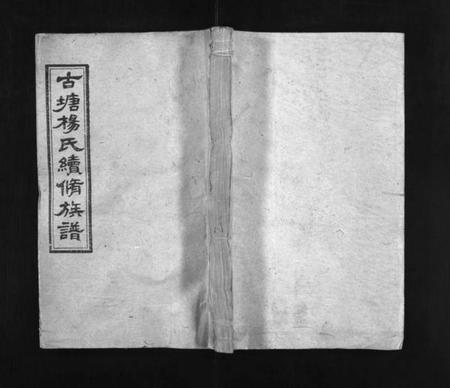 古塘楊氏續脩族譜